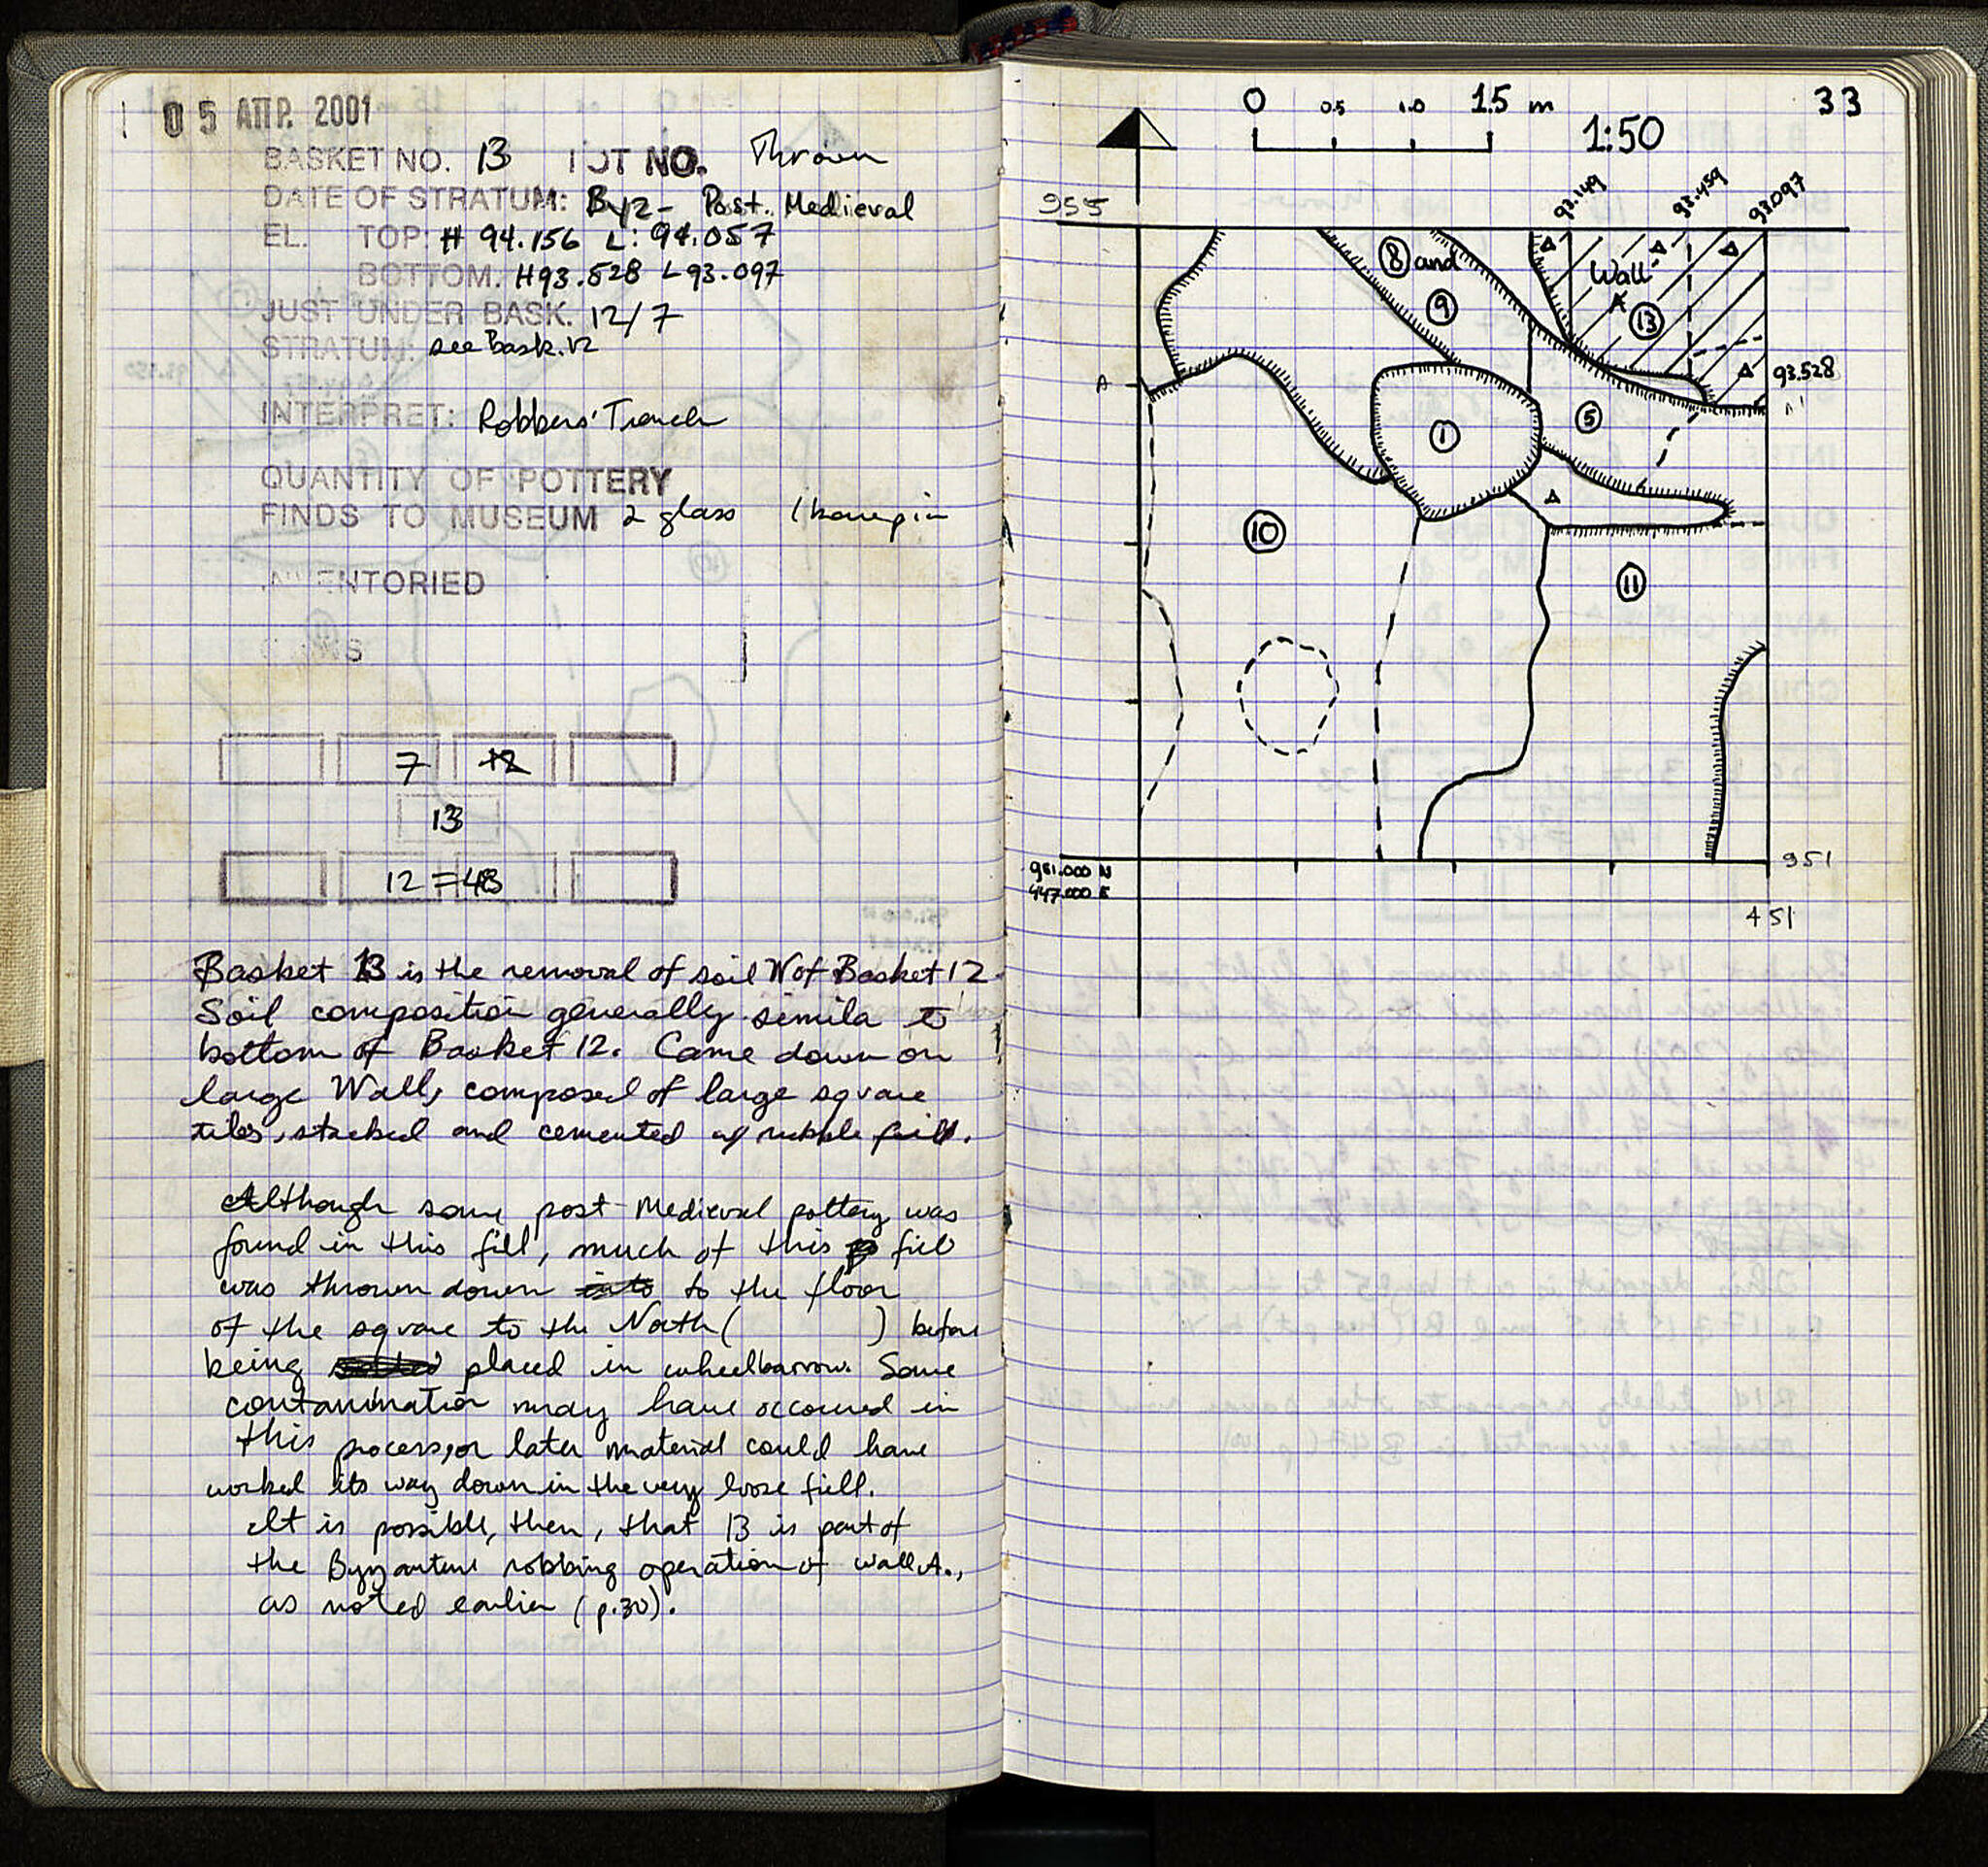 05 ΑΠΡ. 2001
BASKET NO. 13 LOT NO. Thrown
DATE OF STRATUM: Byz- Post. Medieval
EL. TOP: H 94.156 L: 94.057
BOTTOM: H93.528 L93.097
JUST UNDER BASK. 12/7
STRATUM: see Bask. 12
INTERPRET: Robbers' Trench
QUANTITY OF POTTERY
FINDS TO MUSEUM 2 glass 1 bone pin
INVENTORIED
COINS
7 12
13
12 = 48
Basket 13 is the removal of soil W of Basket 12.
Soil composition generally simila to
bottom of Basket 12. Came down on
large Wall, composed of large square
tiles, stacked and cemented w/ rubble fill.
Although some post-Medieval pottery was
found in this fill, much of this fill
was thrown down into to the floor
of the square to the North ( ) before
being placed in wheelbarrow. Some
contamination may have occured in
this process, or later material could have
worked its way down in the very loose fill.
It is possible, then, that 13 is part of
the Byzantine robbing operation of wall A.,
as noted earlier (p.30).
33
0 0.5 1.0 1.5 m
1:50
955
93.149 93.459 93.097
8 and
9
Wall
A
13
93.528
A
A'
1
5
10
11
951.000 N
447.000 E
951
451